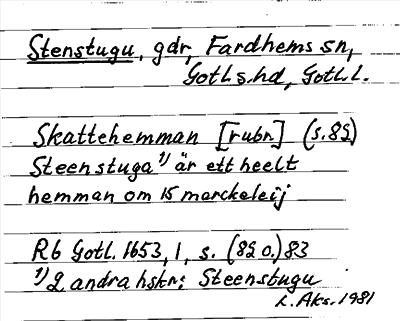 Stenstugu, gdr, Fardhems sn,
Gotl. s. hd, Gotl. l.
Skattehemman [rubr.] (s. 82)
Steenstuga 1) är ett heelt
hemman om 15 marckeleij
Rb Gotl. 1653, 1, s. (82 o.) 83
1) 2 andra hskr: Steenstugu
L. Aks. 1981